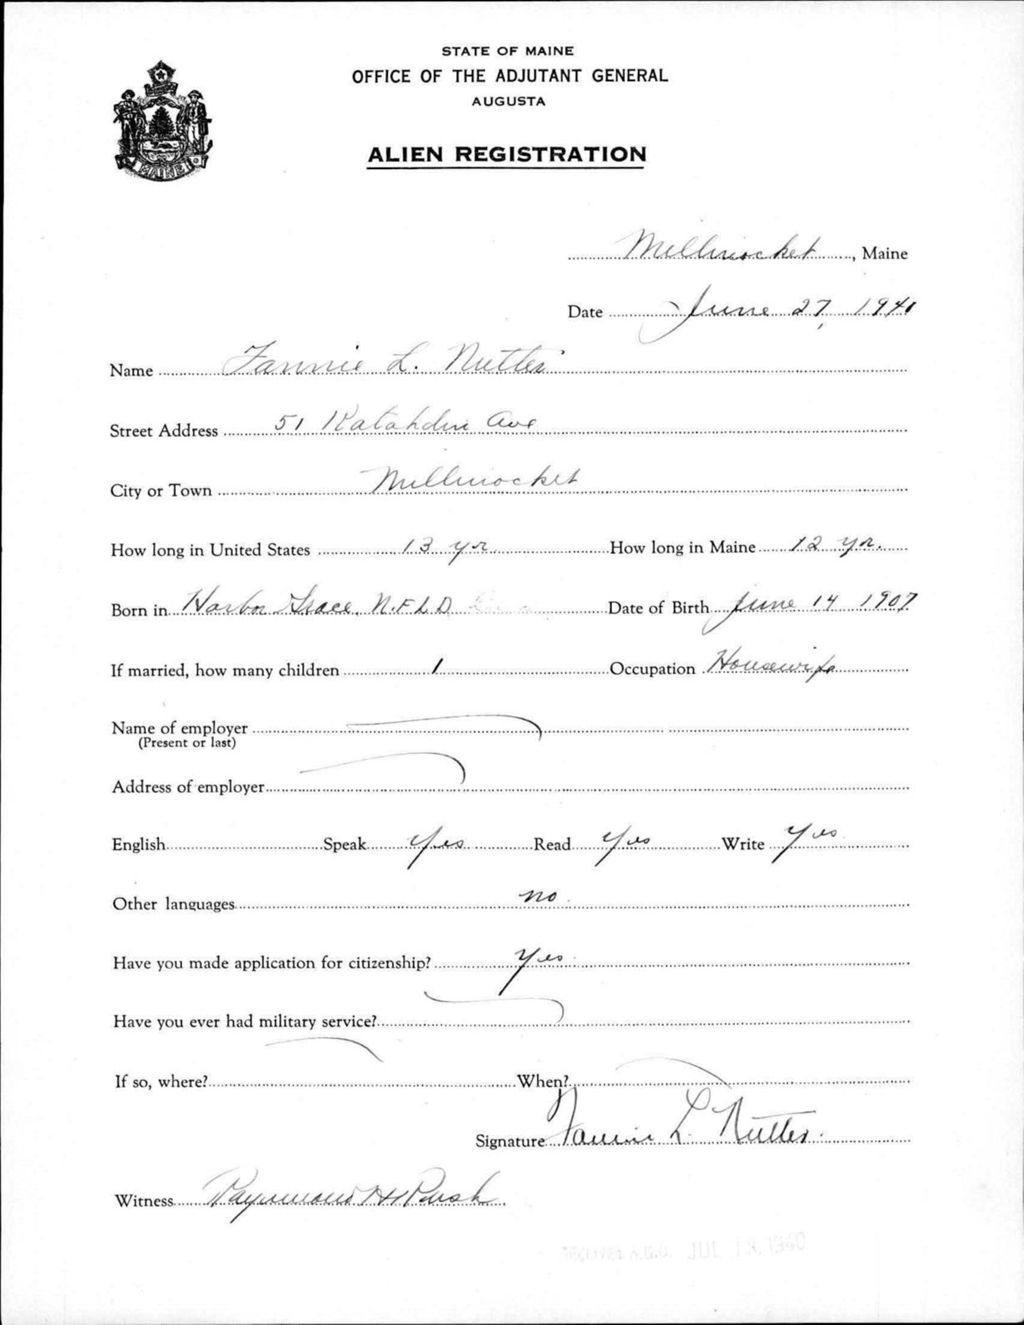 STATE OF MAINE
OFFICE OF THE ADJUTANT GENERAL
AUGUSTA
ALIEN REGISTRATION
MAINE
Millinocket, Maine
Date June 27, 1940
Name Fannie L. Nutter
Street Address 51 Katahdin Ave
City or Town Millinocket
How long in United States 13 yr. How long in Maine 12 yr.
Born in Harbor Grace, N.F.L.D. Date of Birth June 14 1907
If married, how many children 1 Occupation Housewife
Name of employer
(Present or last)
Address of employer
English Speak Yes Read Yes Write Yes
Other languages no
Have you made application for citizenship? Yes
Have you ever had military service?
If so, where? When?
Signature Fannie L. Nutter
Witness Raymond H Rush
RECEIVED A.G.O. JUL 1940